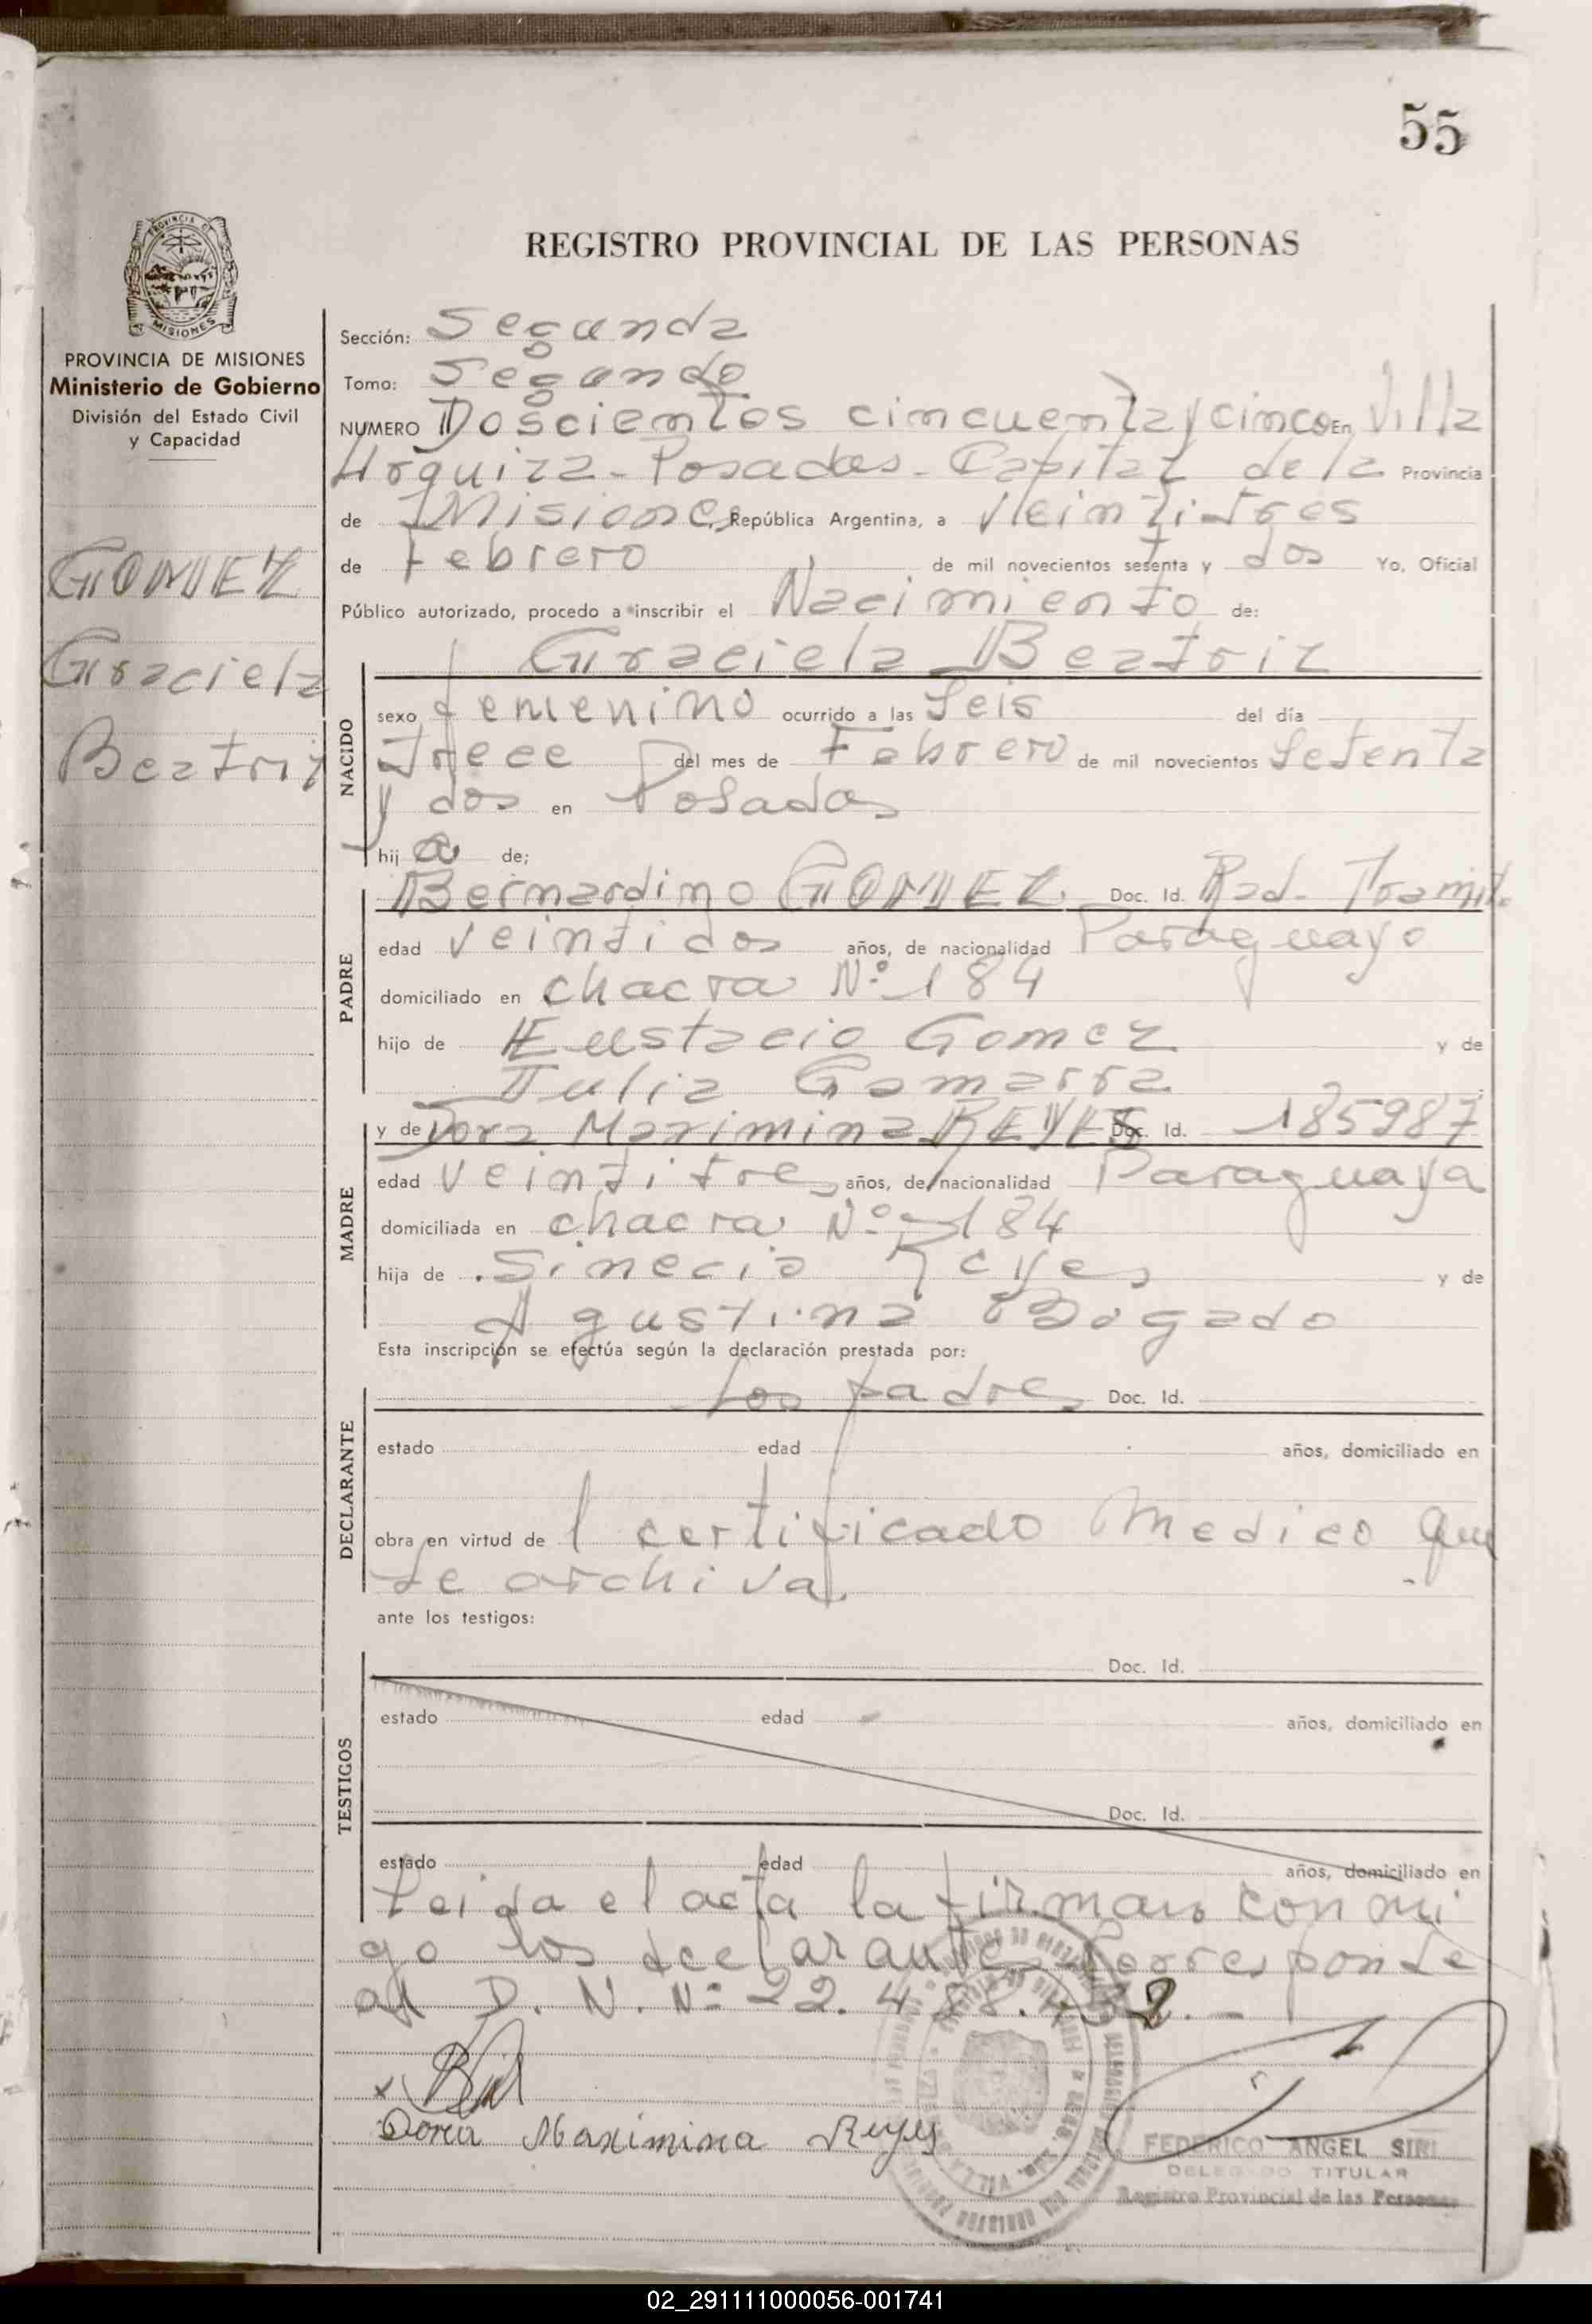 55
PROVINCIA DE
MISIONES
PROVINCIA DE MISIONES
Ministerio de Gobierno
División del Estado Civil
y Capacidad
GOMEZ
Graciela
Beatriz
REGISTRO PROVINCIAL DE LAS PERSONAS
Sección: Segunda
Tomo: Segundo
NUMERO Doscientos cincuenta y cinco En Villa
Urquiza - Posadas - Capital de la Provincia
de Misiones República Argentina, a Veintitres
de Febrero de mil novecientos setenta y dos Yo, Oficial
Público autorizado, procedo a inscribir el Nacimiento de:
Graciela Beatriz
NACIDO
sexo femenino ocurrido a las Seis del día
trece del mes de Febrero de mil novecientos Setenta
y dos en Posadas
hij a de;
PADRE
Bernardino GOMEZ Doc. Id. Rad. Tramite
edad veintidos años, de nacionalidad Paraguayo
domiciliado en chacra Nº 184
hijo de Eustacio Gomez y de
Julia Gamarra
MADRE
y de Dora Maximina REYES Doc. Id. 185987
edad veintitres años, de nacionalidad Paraguaya
domiciliada en chacra Nº 184
hija de Sinecio Reyes y de
Agustina Bogado
Esta inscripción se efectúa según la declaración prestada por:
DECLARANTE
los padres Doc. Id.
estado edad años, domiciliado en
obra en virtud de l certificado Medico que
se archiva.
ante los testigos:
TESTIGOS
Doc. Id.
estado edad años, domiciliado en
Doc. Id.
estado edad años, domiciliado en
Leida el acta la firman con mi
go los declarantes Corresponde
al D. N. Nº 22.488.
Dora Maximina Reyes
FEDERICO ANGEL SIRI
DELEGADO TITULAR
Registro Provincial de las Personas
02_291111000056-001741